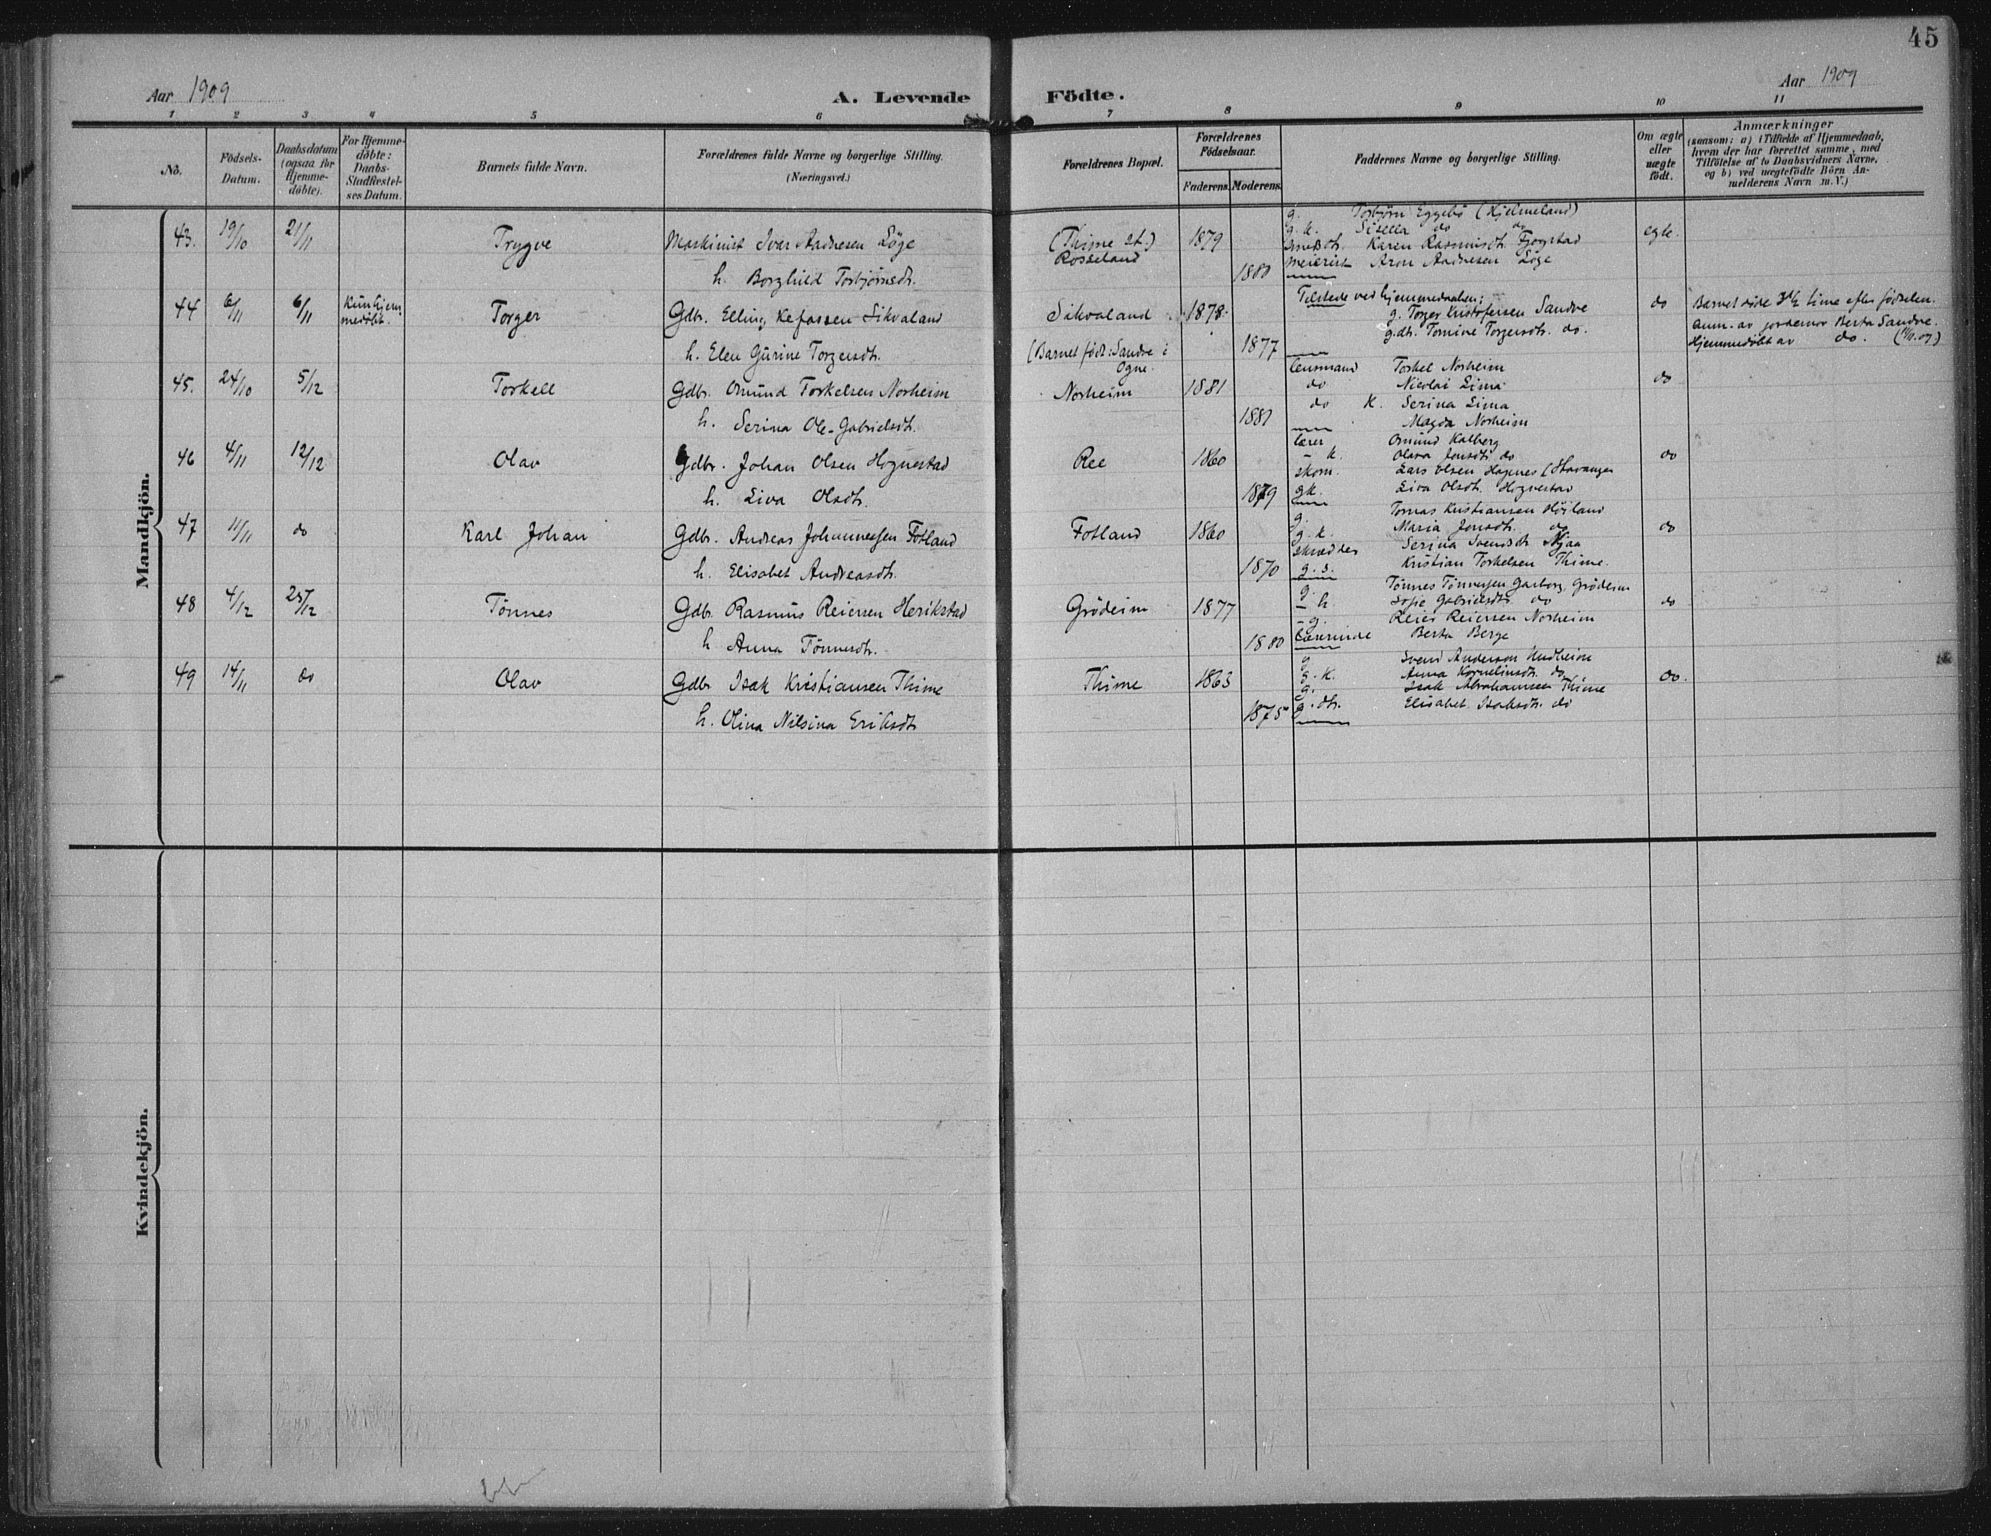 45
Aar 1909 A. Levende Födte. Aar 1909
1 2 3 4 5 6 7 8 9 10 11
No. Födsels-Datum. Daabsdatum (ogsaa for Hjemme-døbte). For Hjemme-døbte: Daabs-Stadfæstel-ses Datum. Barnets fulde Navn. Forældrenes fulde Navne og borgerlige Stilling. (Næringsvei.) Forældrenes Bopæl. Forældrenes Födselsaar. Faderens. Moderens. Faddernes Navne og borgerlige Stilling. Om ægte eller uægte födt. Anmærkninger (saasom: a) i Tilfælde af Hjemmedaab, hvem der har forrettet samme, med Tilföielse af to Daabsvidners Navne, og b) ved uægtefödte Börn An-melderens Navn m. V.)
Mandkjön.
g. Torbjørn Eggebö (Hjelmeland)
43. 19/10 21/11 Trygve Maskinist Iver Aadnesen Löge (Thime st.) 1879 g.k. Sisilia do do egte.
Rosseland Karen Rasmusdt. Fjogstad
h. Borghild Torbjörnsdt. 1880 meierist Aron Aadnesen Löge
44 6/11 6/11 Kun hjem-medöbt. Torger Gdbr. Elling Kefassen Sikvaland Sikvaland 1878 Tilstede ved hjemmedaaben: do Barnet döde 3 1/2 time efter födselen.
g. Torger Kristofersen Sandve anm. av jordemor Berta Sandve.
h. Elen Gurine Torgersdt. (Barnet födt: Sandve i Ogne 1877 g.dt. Tomine Torgersdt. do. Hjemmedöbt av do.
45. 24/10 5/12 Torkell Gdbr. Omund Torkelsen Norheim Norheim 1881 lensmand Torkel Norheim do
do Nicolai Lima
h. Serina Ole-Gabrielsdt. 1881 do k. Serina Lima
Magda Norheim
46 4/11 12/12 Olav Gdbr. Johan Olsen Hognestad Ree 1860 lærer Omund Kalberg do
- k. Olava Jonsdt. do
h. Liva Olsdt. 1879 skom. Lars Olsen Haanes (Stavanger
gk. Liva Olsdt. Hognestad
47 11/11 do Karl Johan Gdbr. Andreas Johannessen Fotland Fotland 1860 g. Tomas Kristiansen Höiland do
g.k. Maria Jonsdt. do
h. Elisabet Andreasdt. 1870 skrædder Serina Svendsdt. Njaa
g.s. Kristian Torkelsen Thime.
48 4/12 25/12 Tönnes Gdbr Rasmus Reiersen Herikstad Grödeim 1877 g. Tönnes Tönnesen Garborg, Grödeim do
- k. Sofie Gabrielsdt. do
h Anna Tönnesdt. 1880 - g. Reier Reiersen Norheim
lærerinde Berta Berge
49 14/11 do Olav Gdbr Isak Kristiansen Thime Thime 1863 g Svend Anderson Undheim do.
g.k. Anna Kornelinsdt. do
h. Olina Nilsina Eriksdt 1875 g. Isak Abrahamsen Thime
g.dt. Elisabet Isaksdt. do
Kvindekjön.